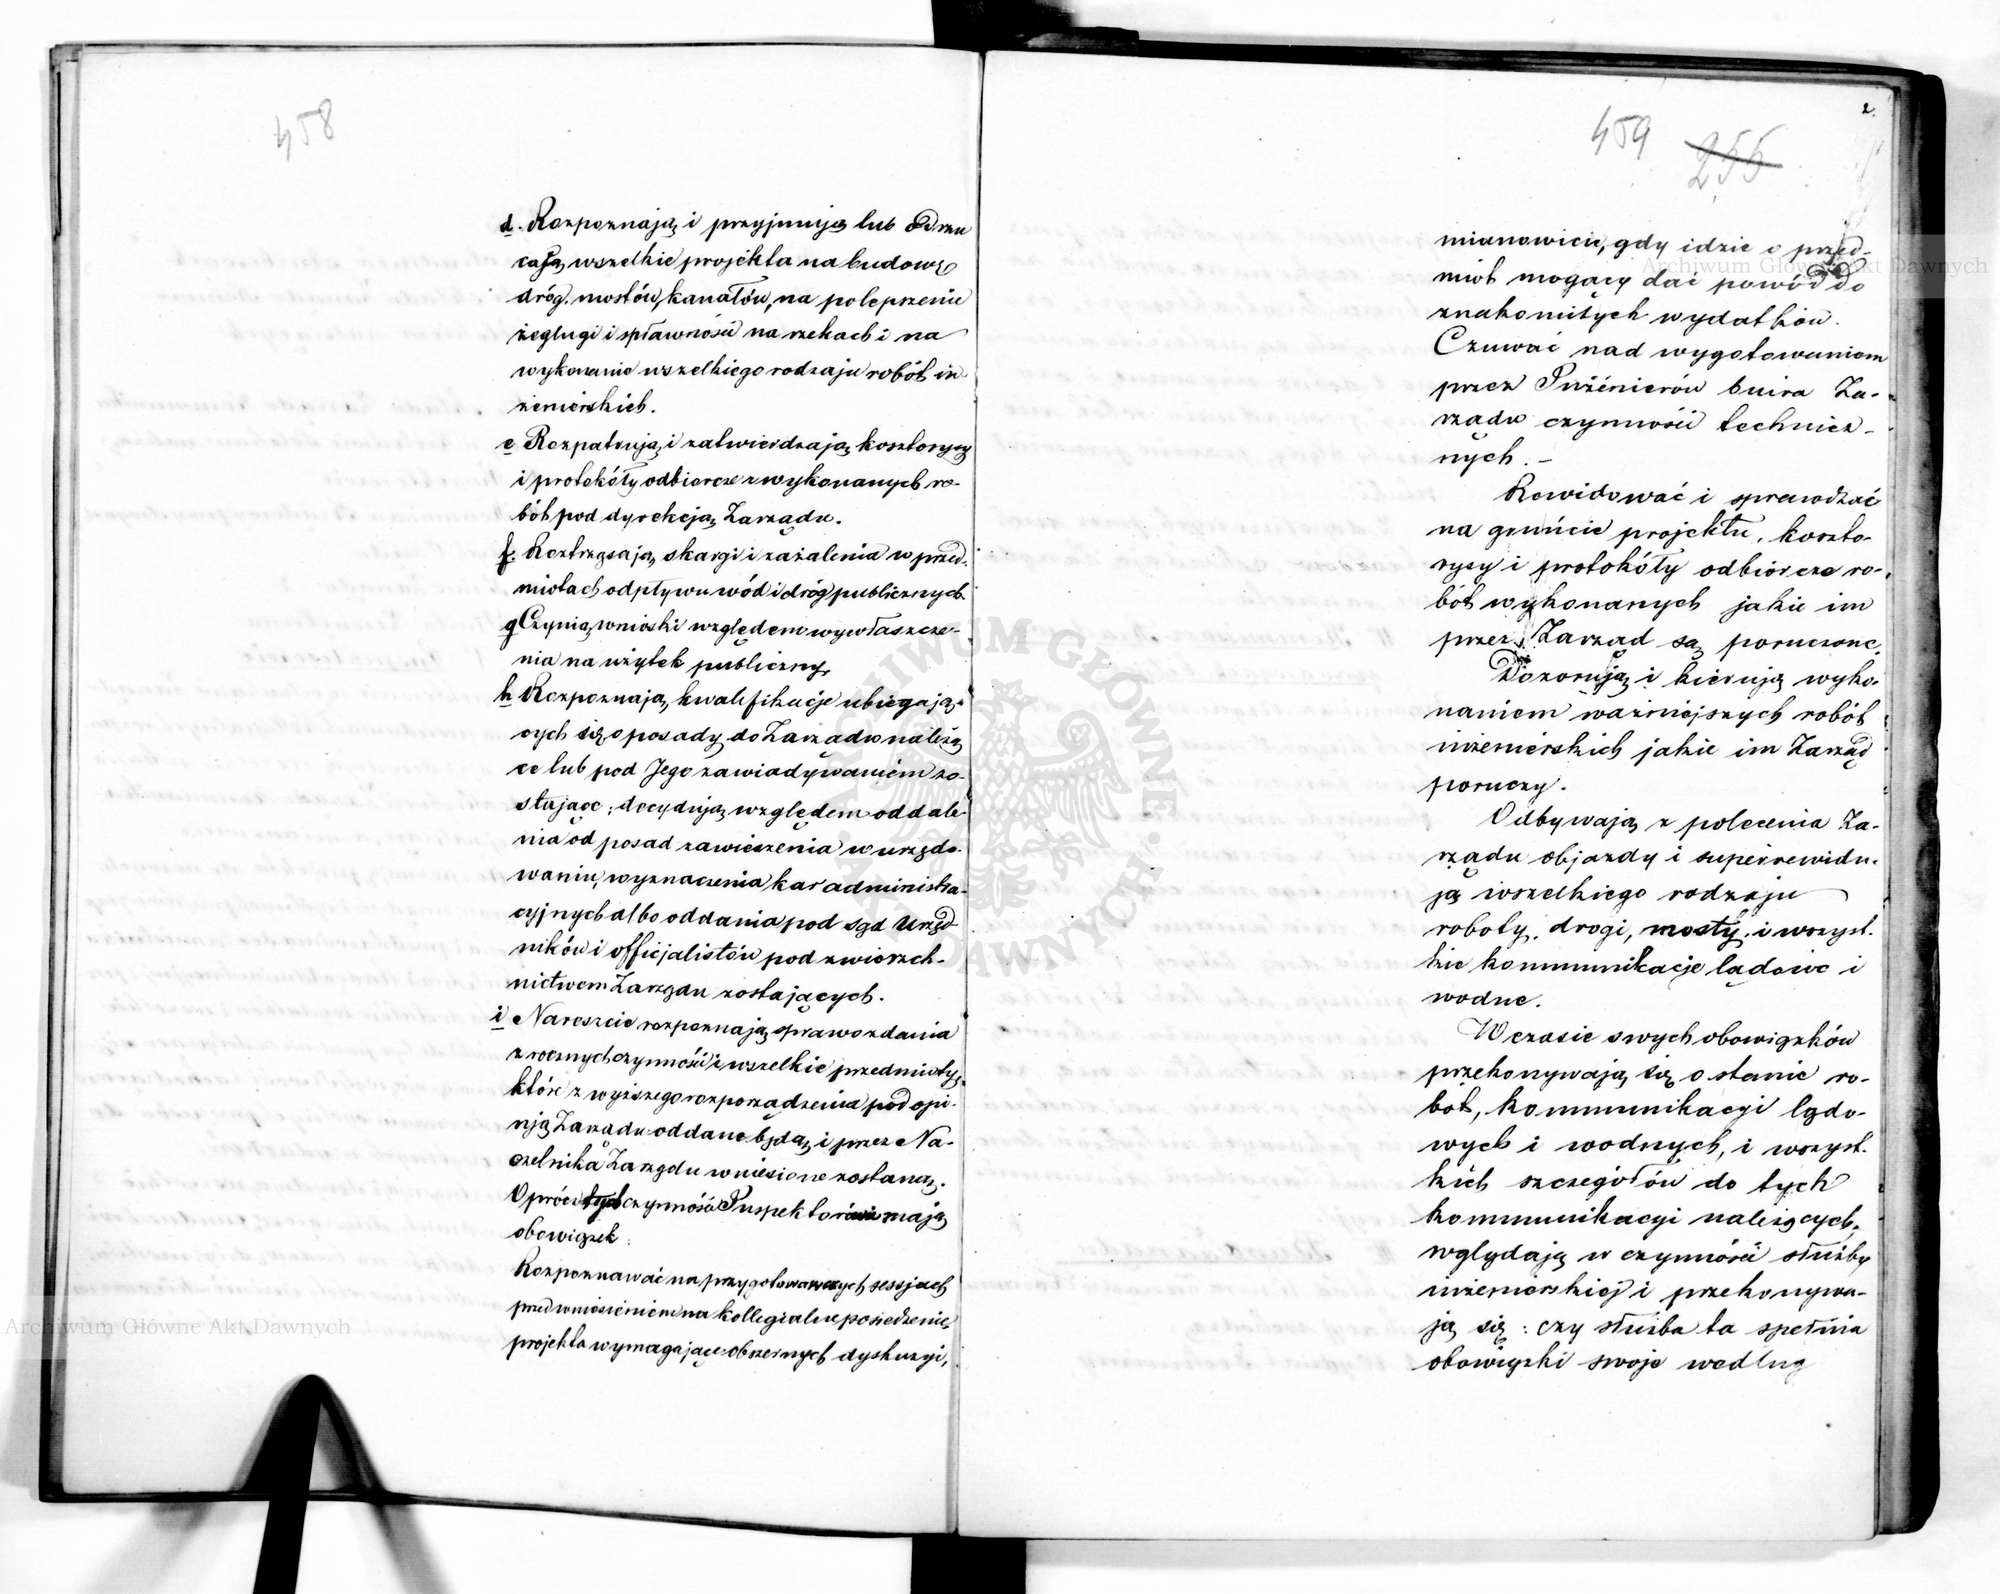 458
d. Rozpoznają i przyjmują lub odrzu
cają wszelkie projekta na budowę
dróg, mostów, kanałów, na polepszenie
żeglugi i spławności na rzekach i na
wykonanie wszelkiego rodzaju robót in
żenierskich.
e Rozpatrują i zatwierdzają kosztorysy
i protokóły odbiorcze z wykonanych ro-
bót pod dyrekcją Zarządu.
f. Roztrząsają skargi i zażalenia w przed-
miotach odpływu wód i dróg publicznych
g Czynią wnioski względem wywłaszcze-
nia na użytek publiczny,
h Rozpoznają kwalifikacje ubiegają-
cych się o posady do Zarządu należą
ce lub pod Jego zawiadywaniem zo-
stające; decydują względem oddale-
nia od posad zawieszenia w urzędo-
waniu, wyznaczenia kar administra-
cyjnych albo oddania pod sąd Urzęd-
ników i officjalistów pod zwierzch-
nictwem Zarządu zostających.
i Nareszcie rozpoznają sprawozdania
z rocznych czynności i wszelkie przedmioty,
które z wyższego rozporządzenia pod opi-
nją Zarządu oddane będą i przez Na-
czelnika Zarządu wniesione zostaną.
Oprócz tych czynności Inspektorowie mają
obowiązek:
Rozpoznawać na przygotowawczych sessjach
przed wniesieniem na kollegialne posiedzenie
projekta wymagające obszernych dyskuzyi,
2.
459 255
mianowicie, gdy idzie o przed-
miot mogący dać powód do
znakomitych wydatków.
Czuwać nad wygotowaniem
przez Inżenierów biura Za-
rządu czynności technicz-
nych. –
Rewidować i sprawdzać
na gruńcie projekta, koszto-
rysy i protokóły odbiorcze ro-
bót wykonanych jakie im
przez Zarząd są poruczone.
Dozorują i kierują wyko-
naniem ważniejszych robót
inżenierskich jakie im Zarząd
poruczy.
Odbywają z polecenia Za-
rządu objazdy i superrewidu-
ją wszelkiego rodzaju
roboty, drogi, mosty, i wszyst-
kie kommunikacje lądowe i
wodne.
W czasie swych obowiązków
przekonywają się o stanie ro-
bót, kommunikacyi lądo-
wych i wodnych, i wszyst-
kich szczegółów do tych
kommunikacyi należących,
wglądają w czynności służby
inżenierskiej i przekonywa-
ją się: czy służba ta spełnia
obowiązki swoje według
Archiwum Główne Akt Dawnych
Archiwum Główne Akt Dawnych
ARCHIWUM GŁÓWNE AKT DAWNYCH